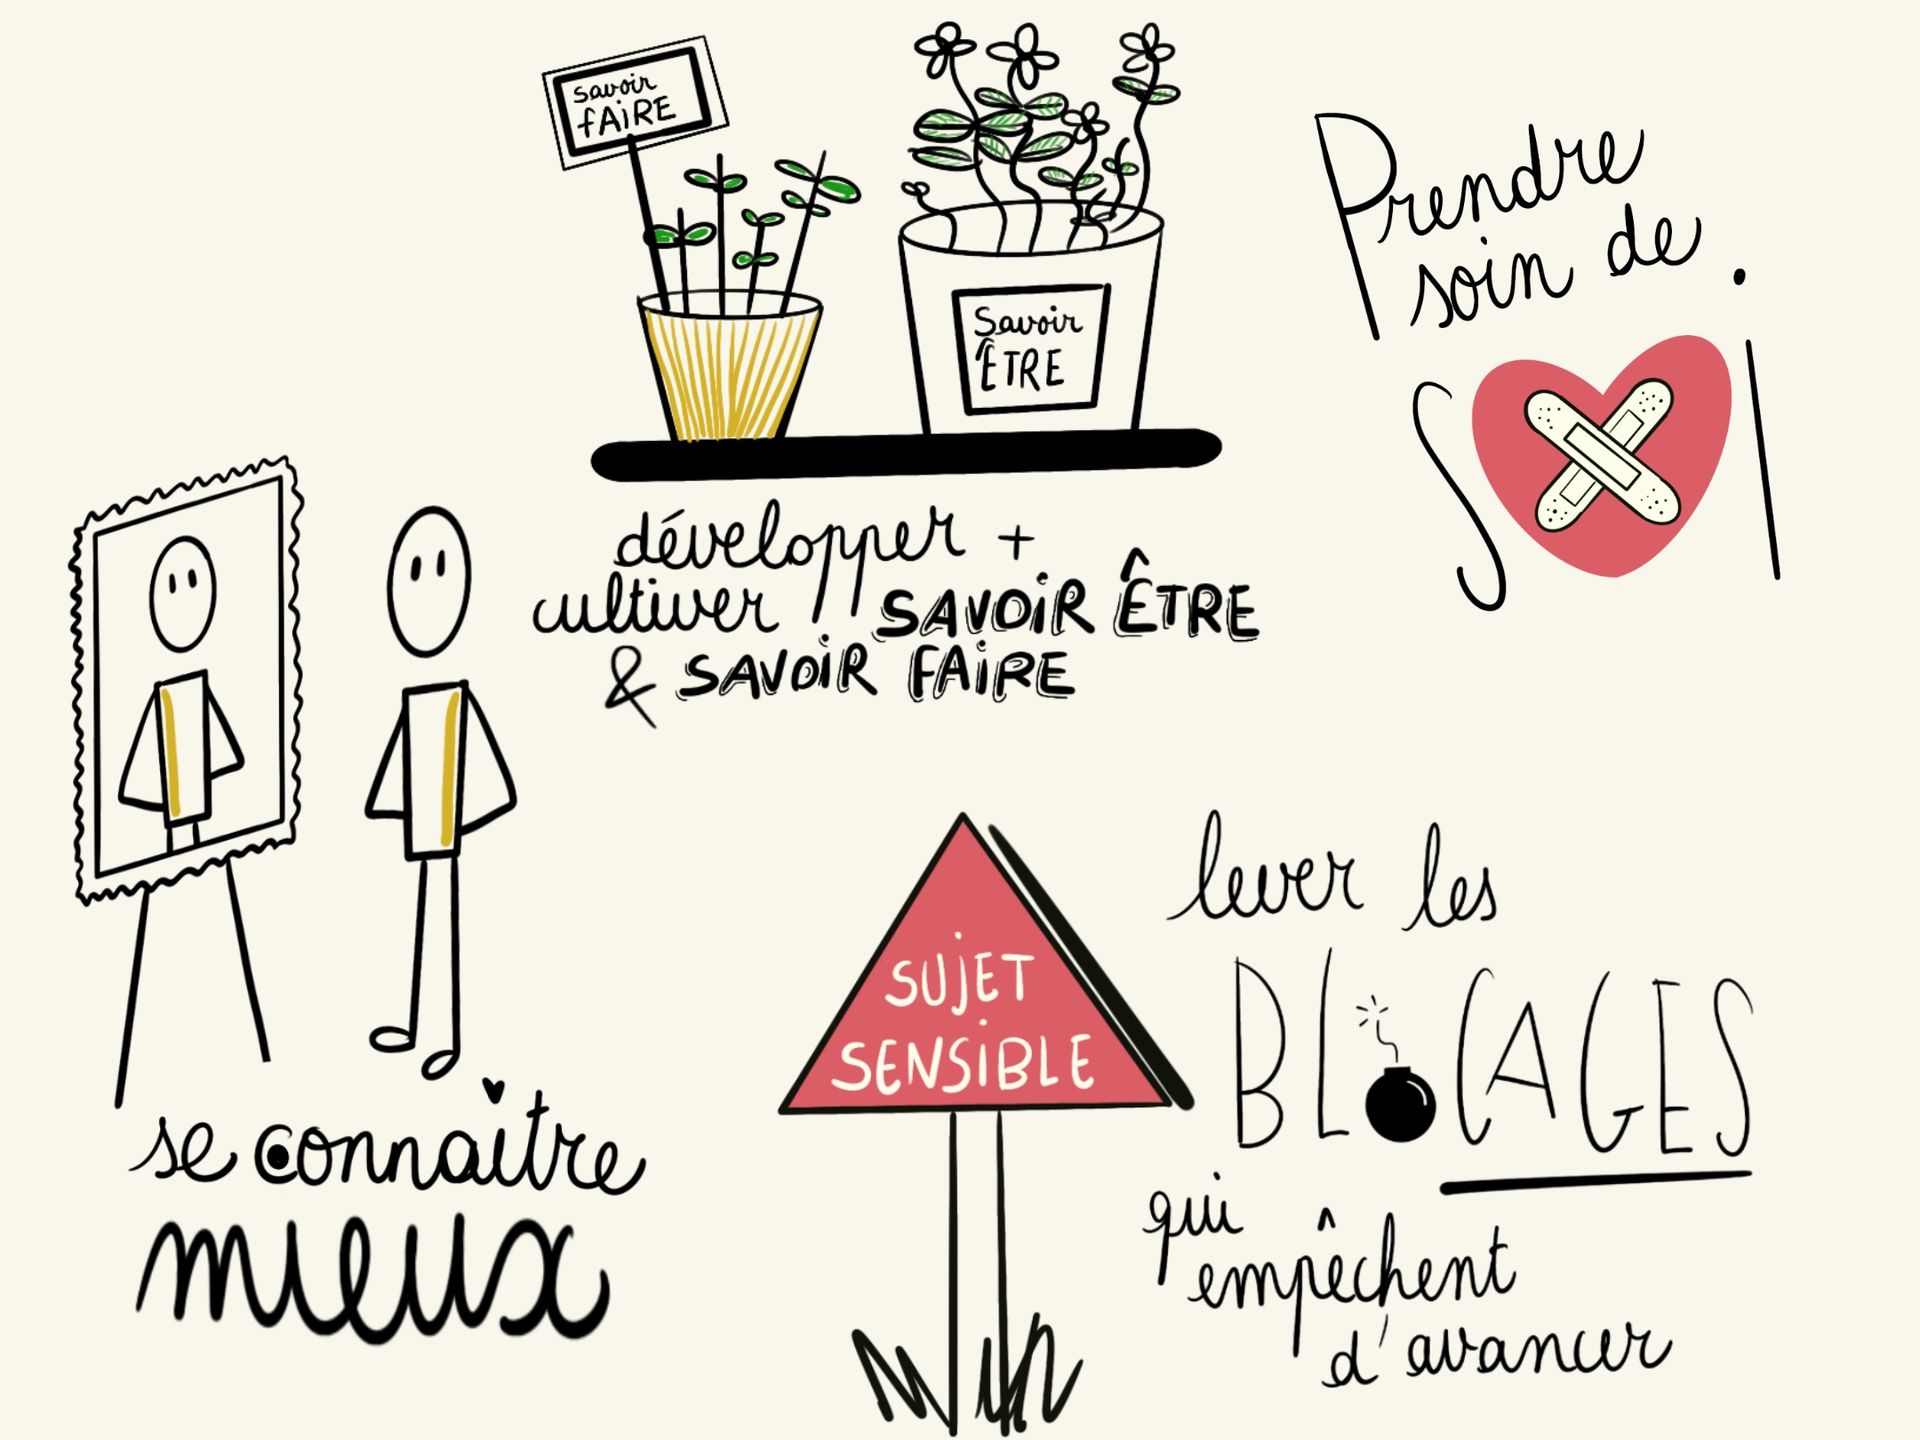 savoir
fAiRE
Savoir
ÊTRE
développer +
cultiver SAVOiR ÊTRE
& SAVOiR FAiRE
Prendre
soin de
SOI
se connaitre
mieux
SUJET
SENSiBLE
lever les
BLOCAGES
qui
empêchent
d'avancer